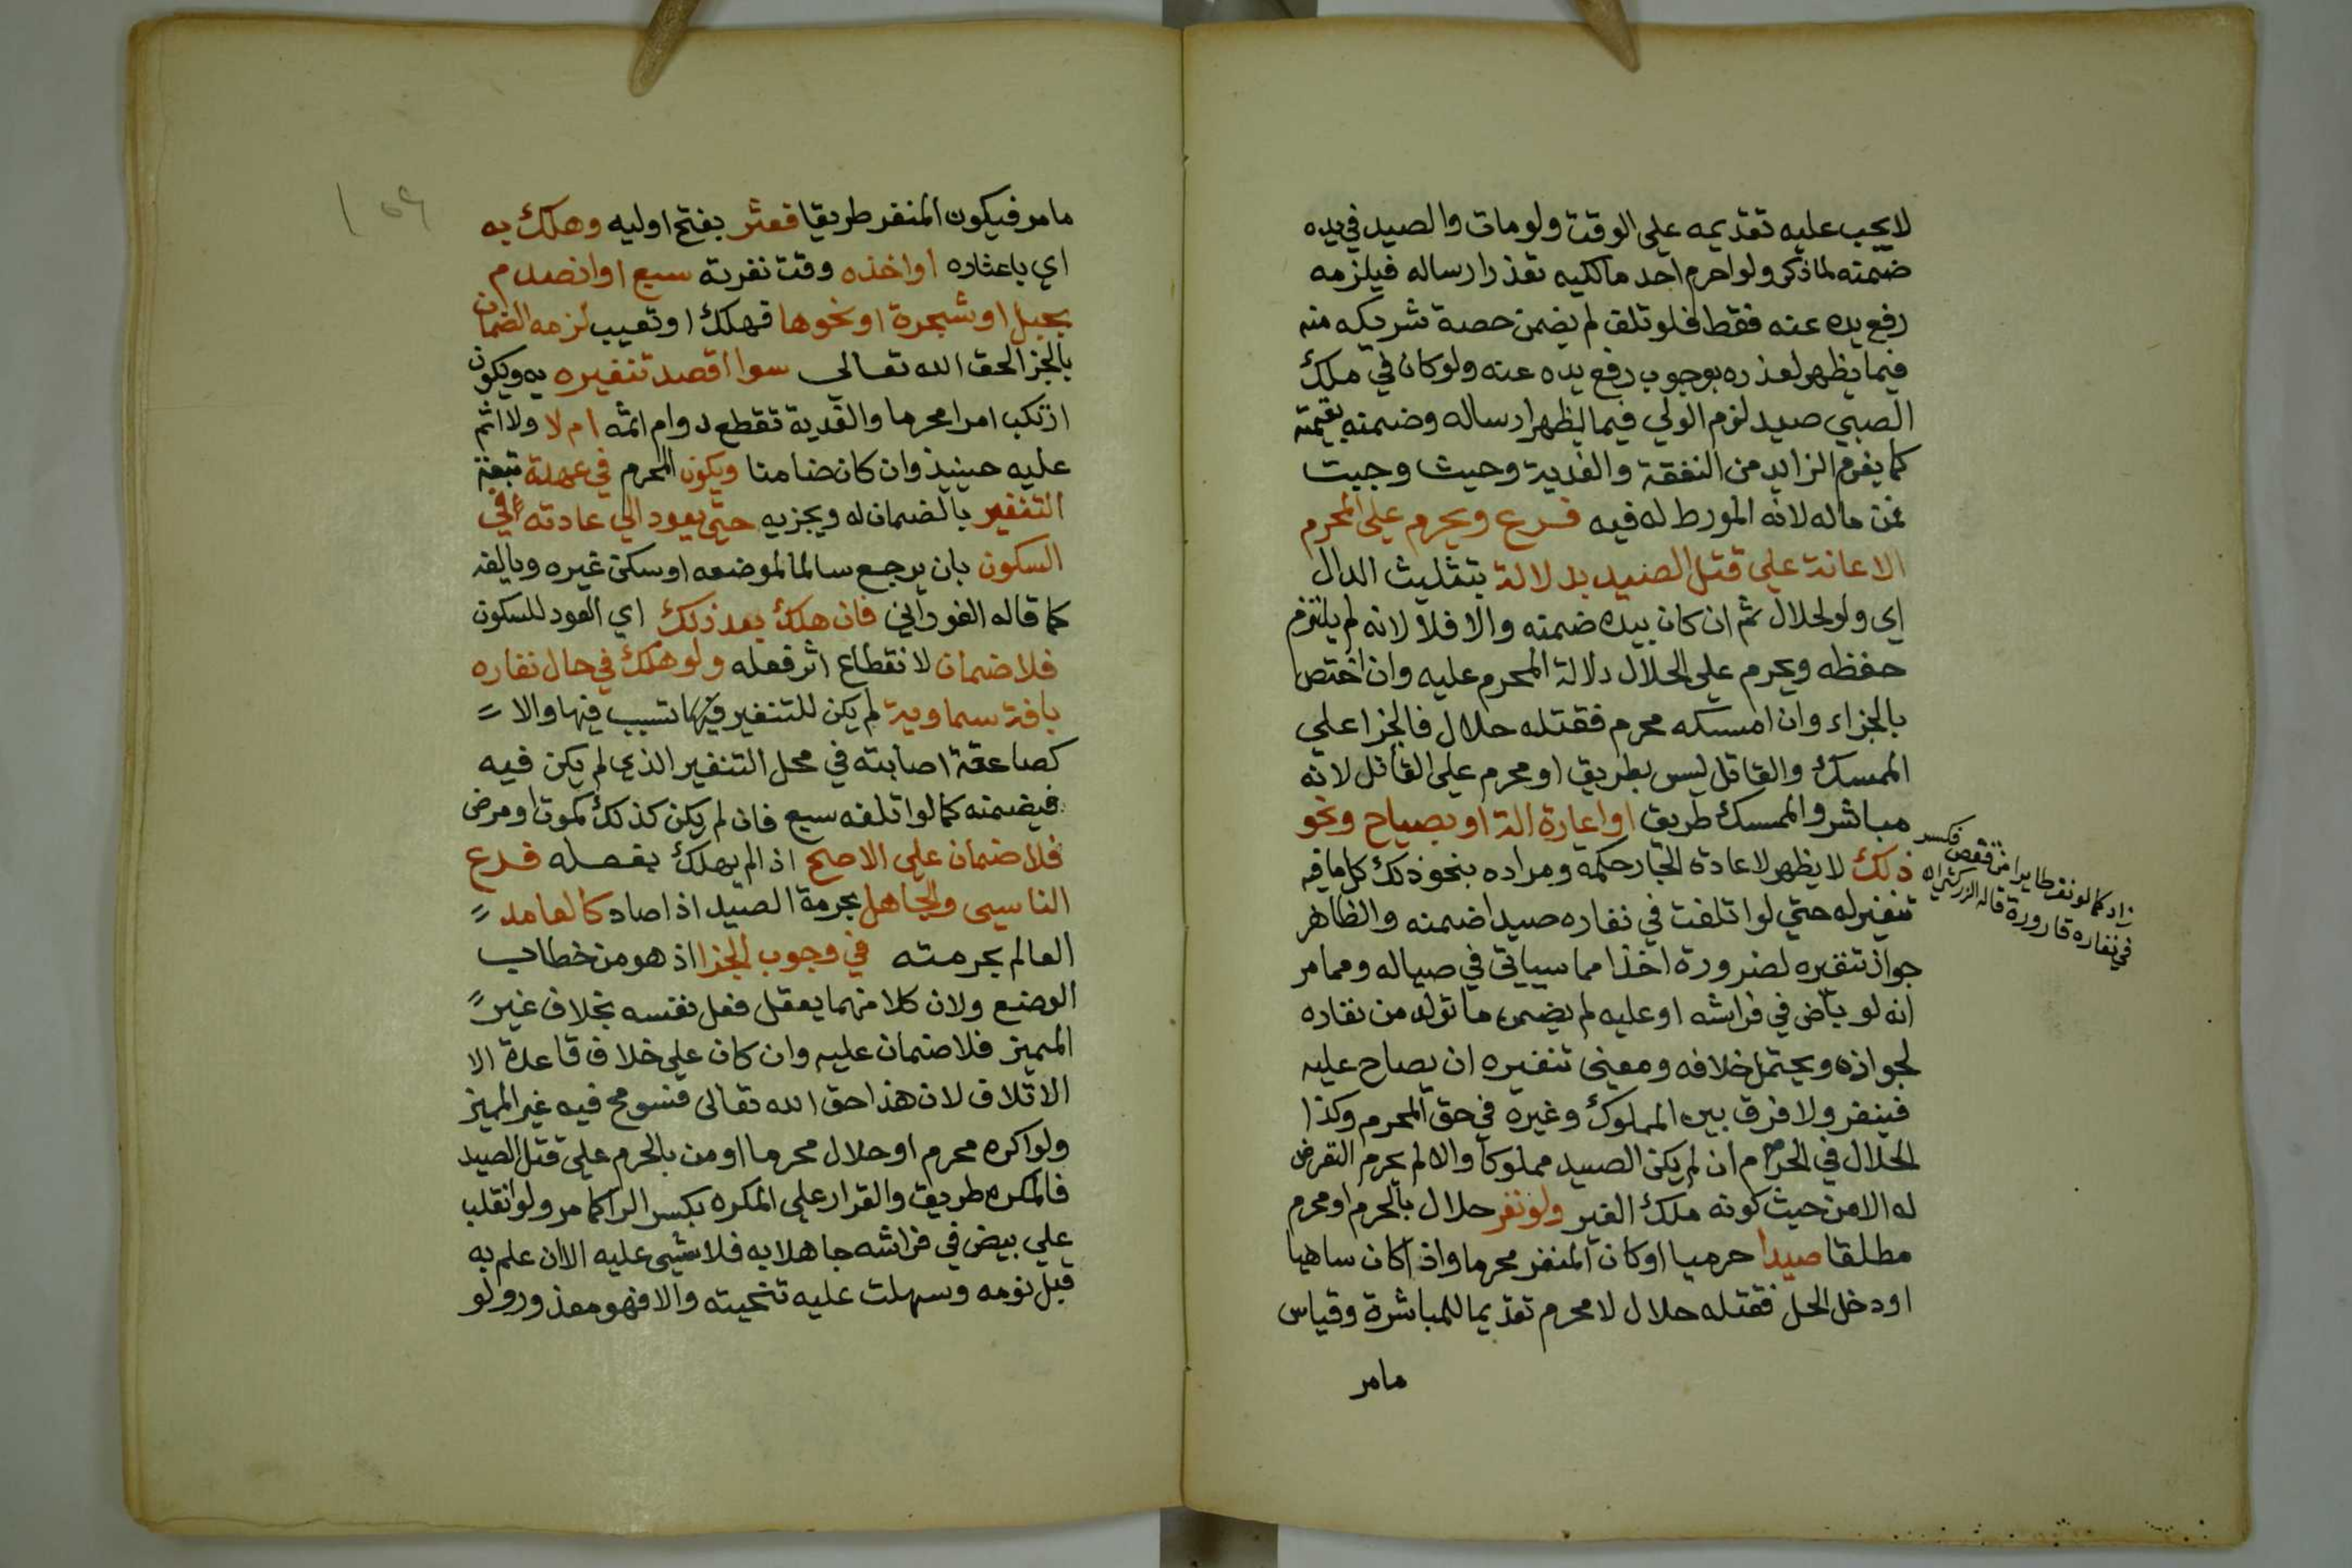 لا يجب عليه تقديمه على الوقت ولو مات والصيد في يده
ضمنه لما ذكر ولو احرم احد مالكيه تعذر ارساله فيلزمه
رفع يده عنه فقط فلو تلف لم يضمن حصة شريكه منه
فيما يظهر لعذره بوجوب رفع يده عنه ولو كان في ملك
الصبي صيد لزم الولي فيما يظهر ارساله وضمنه بقيمته
كما يغرم الزايد من النفقة والفدية وحيث وجبت
فمن ماله لانه المورط له فيه فرع ويحرم على المحرم
الاعانة علي قتل الصيد بدلالة بتثليث الدال
اي ولو لحلال ثم ان كان بيده ضمنه والا فلا لانه لم يلتزم
حفظه ويحرم على الحلال دلالة المحرم عليه وان اختص
بالجزاء وان امسكه محرم فقتله حلال فالجزا علي
الممسك والقاتل ليس بطريق او محرم على القاتل لانه
مباشر والممسك طريق او اعارة الة او بصياح ونحو
ذلك لا يظهر لاعادة الجار حكمه ومراده بنحو ذلك كل ما فيه
تنفير له حتي لو اتلفت في نفاره صيدا ضمنه والظاهر
جواز تنفيره لضرورة اخذا مما سياتي في صياله ومما مر
انه لو باض في فراشه او عليه لم يضمن ما تولد من نفاره
لجوازه ويحتمل خلافه ومعنى تنفيره ان يصاح عليه
فينفر ولا فرق بين المملوك وغيره في حق المحرم وكذا
الحلال في الحرم ان لم يكن الصيد مملوكا والا لم يحرم التعرض
له الا من حيث كونه ملك الغير ولو نفر حلال بالحرم او محرم
مطلقا صيدا حرميا او كان المنفر محرما واذا كان ساهيا
او دخل الحل فقتله حلال لا محرم تقديما للمباشرة وقياس
مامر
زاد كما لو نفر طايرا من قفص فكسر
في نفاره قارورة قاله الزركشي اه
١٥٩
مامر فيكون المنفر طريقا فعثر بفتح اوليه وهلك به
اي باعثاره او اخذه وقت نفرته سبع او انصدم
بجبل او شجرة او نحوها فهلك او تعيب لزمه الضمان
بالجزا لحق الله تعالي سوا اقصد تنفيره به ويكون
ارتكب امرا محرما والفدية تقطع دوام اثمه ام لا ولا اثم
عليه حينيذ وان كان ضامنا ويكون المحرم في عهدة تبعة
التنفير بالضمان له ويجزيه حتى يعود الي عادته في
السكون بان يرجع سالما لموضعه او سكن غيره ويالفه
كما قاله الفوراني فان هلك بعد ذلك اي العود للسكون
فلا ضمان لانقطاع اثر فعله ولو هلك في حال نفاره
بافة سماوية لم يكن للتنفير فيها تسبب فيها والا
كصاعقة اصابته في محل التنفير الذي لم يكن فيه
فيضمنه كما لو اتلفه سبع فان لم يكن كذلك كموت او مرض
فلا ضمان على الاصح اذ لم يهلك بفعله فرع
الناسي والجاهل بحرمة الصيد اذا صاد كالعامد
العالم بحرمته في وجوب الجزا اذ هو من خطاب
الوضع ولان كلا منهما يعقل فعل نفسه بخلاف غير
المميز فلا ضمان عليه وان كان علي خلاف قاعدة الا
الاتلاف لان هذا حق الله تعالى فسومح فيه غير المميز
ولو اكره محرم او حلال محرما او من بالحرم علي قتل الصيد
فالمكره طريق والقرار على المكره بكسر الرا كما مر ولو انقلب
علي بيض في فراشه جاهلا به فلا شيى عليه الا ان علم به
قبل نومه وسهلت عليه تنحيته والا فهو معذور ولو